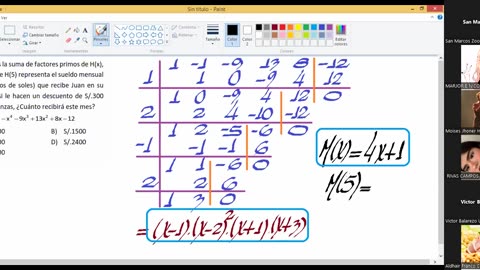 Sin título - Paint
Ver
Pinceles
Color 1
Color 2
s la suma de factores primos de H(x),
e H(5) representa el sueldo mensual
s de soles) que recibe Juan en su
si le hacen un descuento de S/.300
anzas, ¿Cuánto recibirá este mes?
- x⁴ - 9x³ + 13x² + 8x - 12
00 B) S/.1500
00 D) S/.2400
00
1 -1 -9 13 8 -12
1 1 0 -9 4 12
1 0 -9 4 12 0
2 2 4 -10 -12
1 2 -5 -6 0
-1 -1 -1 6
1 1 -6 0
2 2 6
1 3 0
= (x-1).(x-2)².(x+1).(x+3)
H(x)=4x+1
H(5)=
San M
San Marcos Zoo
Moises Jhoner H
RIVAS CAMPOS
Victor B
Victor Balarezo
Aldhair Franco